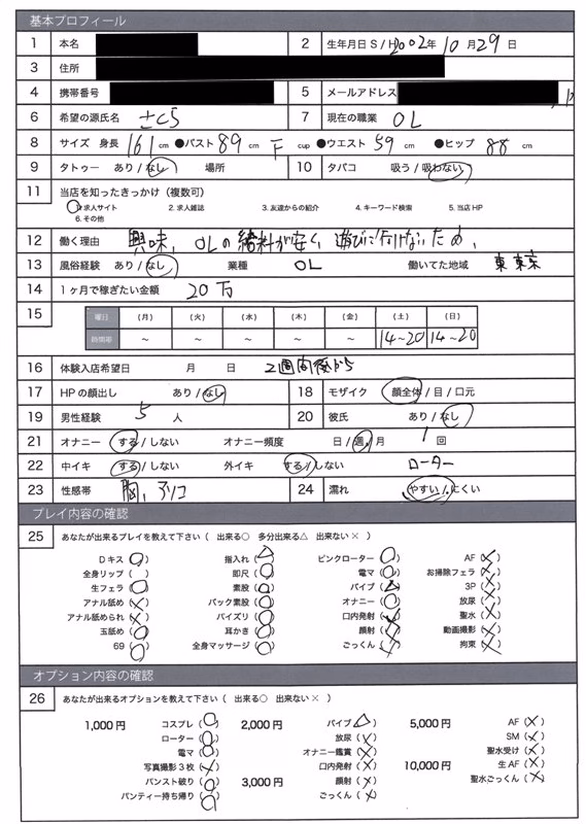 基本プロフィール
1 本名 2 生年月日 S / H 2002年 10月 29日
3 住所
4 携帯番号 5 メールアドレス
6 希望の源氏名 さくら 7 現在の職業 OL
8 サイズ 身長 161cm ●バスト 89cm F cup ●ウエスト 59cm ●ヒップ 88cm
9 タトゥー あり / なし 場所 10 タバコ 吸う / 吸わない
11 当店を知ったきっかけ（複数可）
1.求人サイト 2. 求人雑誌 3. 友達からの紹介 4. キーワード検索 5. 当店 HP
6. その他
12 働く理由 興味、OLの給料が安く、遊びに行けないため、
13 風俗経験 あり / なし 業種 OL 働いてた地域 東京
14 1ヶ月で稼ぎたい金額 20万
15 曜日 (月) (火) (水) (木) (金) (土) (日)
時間帯 ～ ～ ～ ～ ～ 14~20 14~20
16 体験入店希望日 月 日 2週間後から
17 HPの顔出し あり / なし 18 モザイク 顔全体 / 目 / 口元
19 男性経験 5 人 20 彼氏 あり / なし
21 オナニー する / しない オナニー頻度 日 / 週 / 月 1 回
22 中イキ する / しない 外イキ する / しない ローター
23 性感帯 胸、クリ 24 濡れ やすい / にくい
プレイ内容の確認
25 あなたが出来るプレイを教えて下さい（ 出来る○ 多分出来る△ 出来ない× ）
Dキス (○) 指入れ (△) ピンクローター (○) AF (×)
全身リップ ( ) 即尺 (○) 電マ (○) お掃除フェラ (×)
生フェラ (○) 素股 (○) バイブ (△) 3P (×)
アナル舐め (×) バック素股 (○) オナニー (○) 放尿 (×)
アナル舐められ (×) パイズリ (○) 口内発射 (×) 聖水 (×)
玉舐め (○) 耳かき (○) 顔射 (×) 動画撮影 (×)
69 (○) 全身マッサージ (○) ごっくん (×) 拘束 (×)
オプション内容の確認
26 あなたが出来るオプションを教えて下さい（ 出来る○ 出来ない× ）
1,000円 コスプレ (○) 2,000円 バイブ (△) 5,000円 AF (×)
ローター (○) 放尿 (×) SM (×)
電マ (○) オナニー鑑賞 (×) 聖水受け (×)
写真撮影3枚 (×) 口内発射 (×) 10,000円 生AF (×)
パンスト破り (○) 3,000円 顔射 (×) 聖水ごっくん (×)
パンティー持ち帰り (○) ごっくん (×)